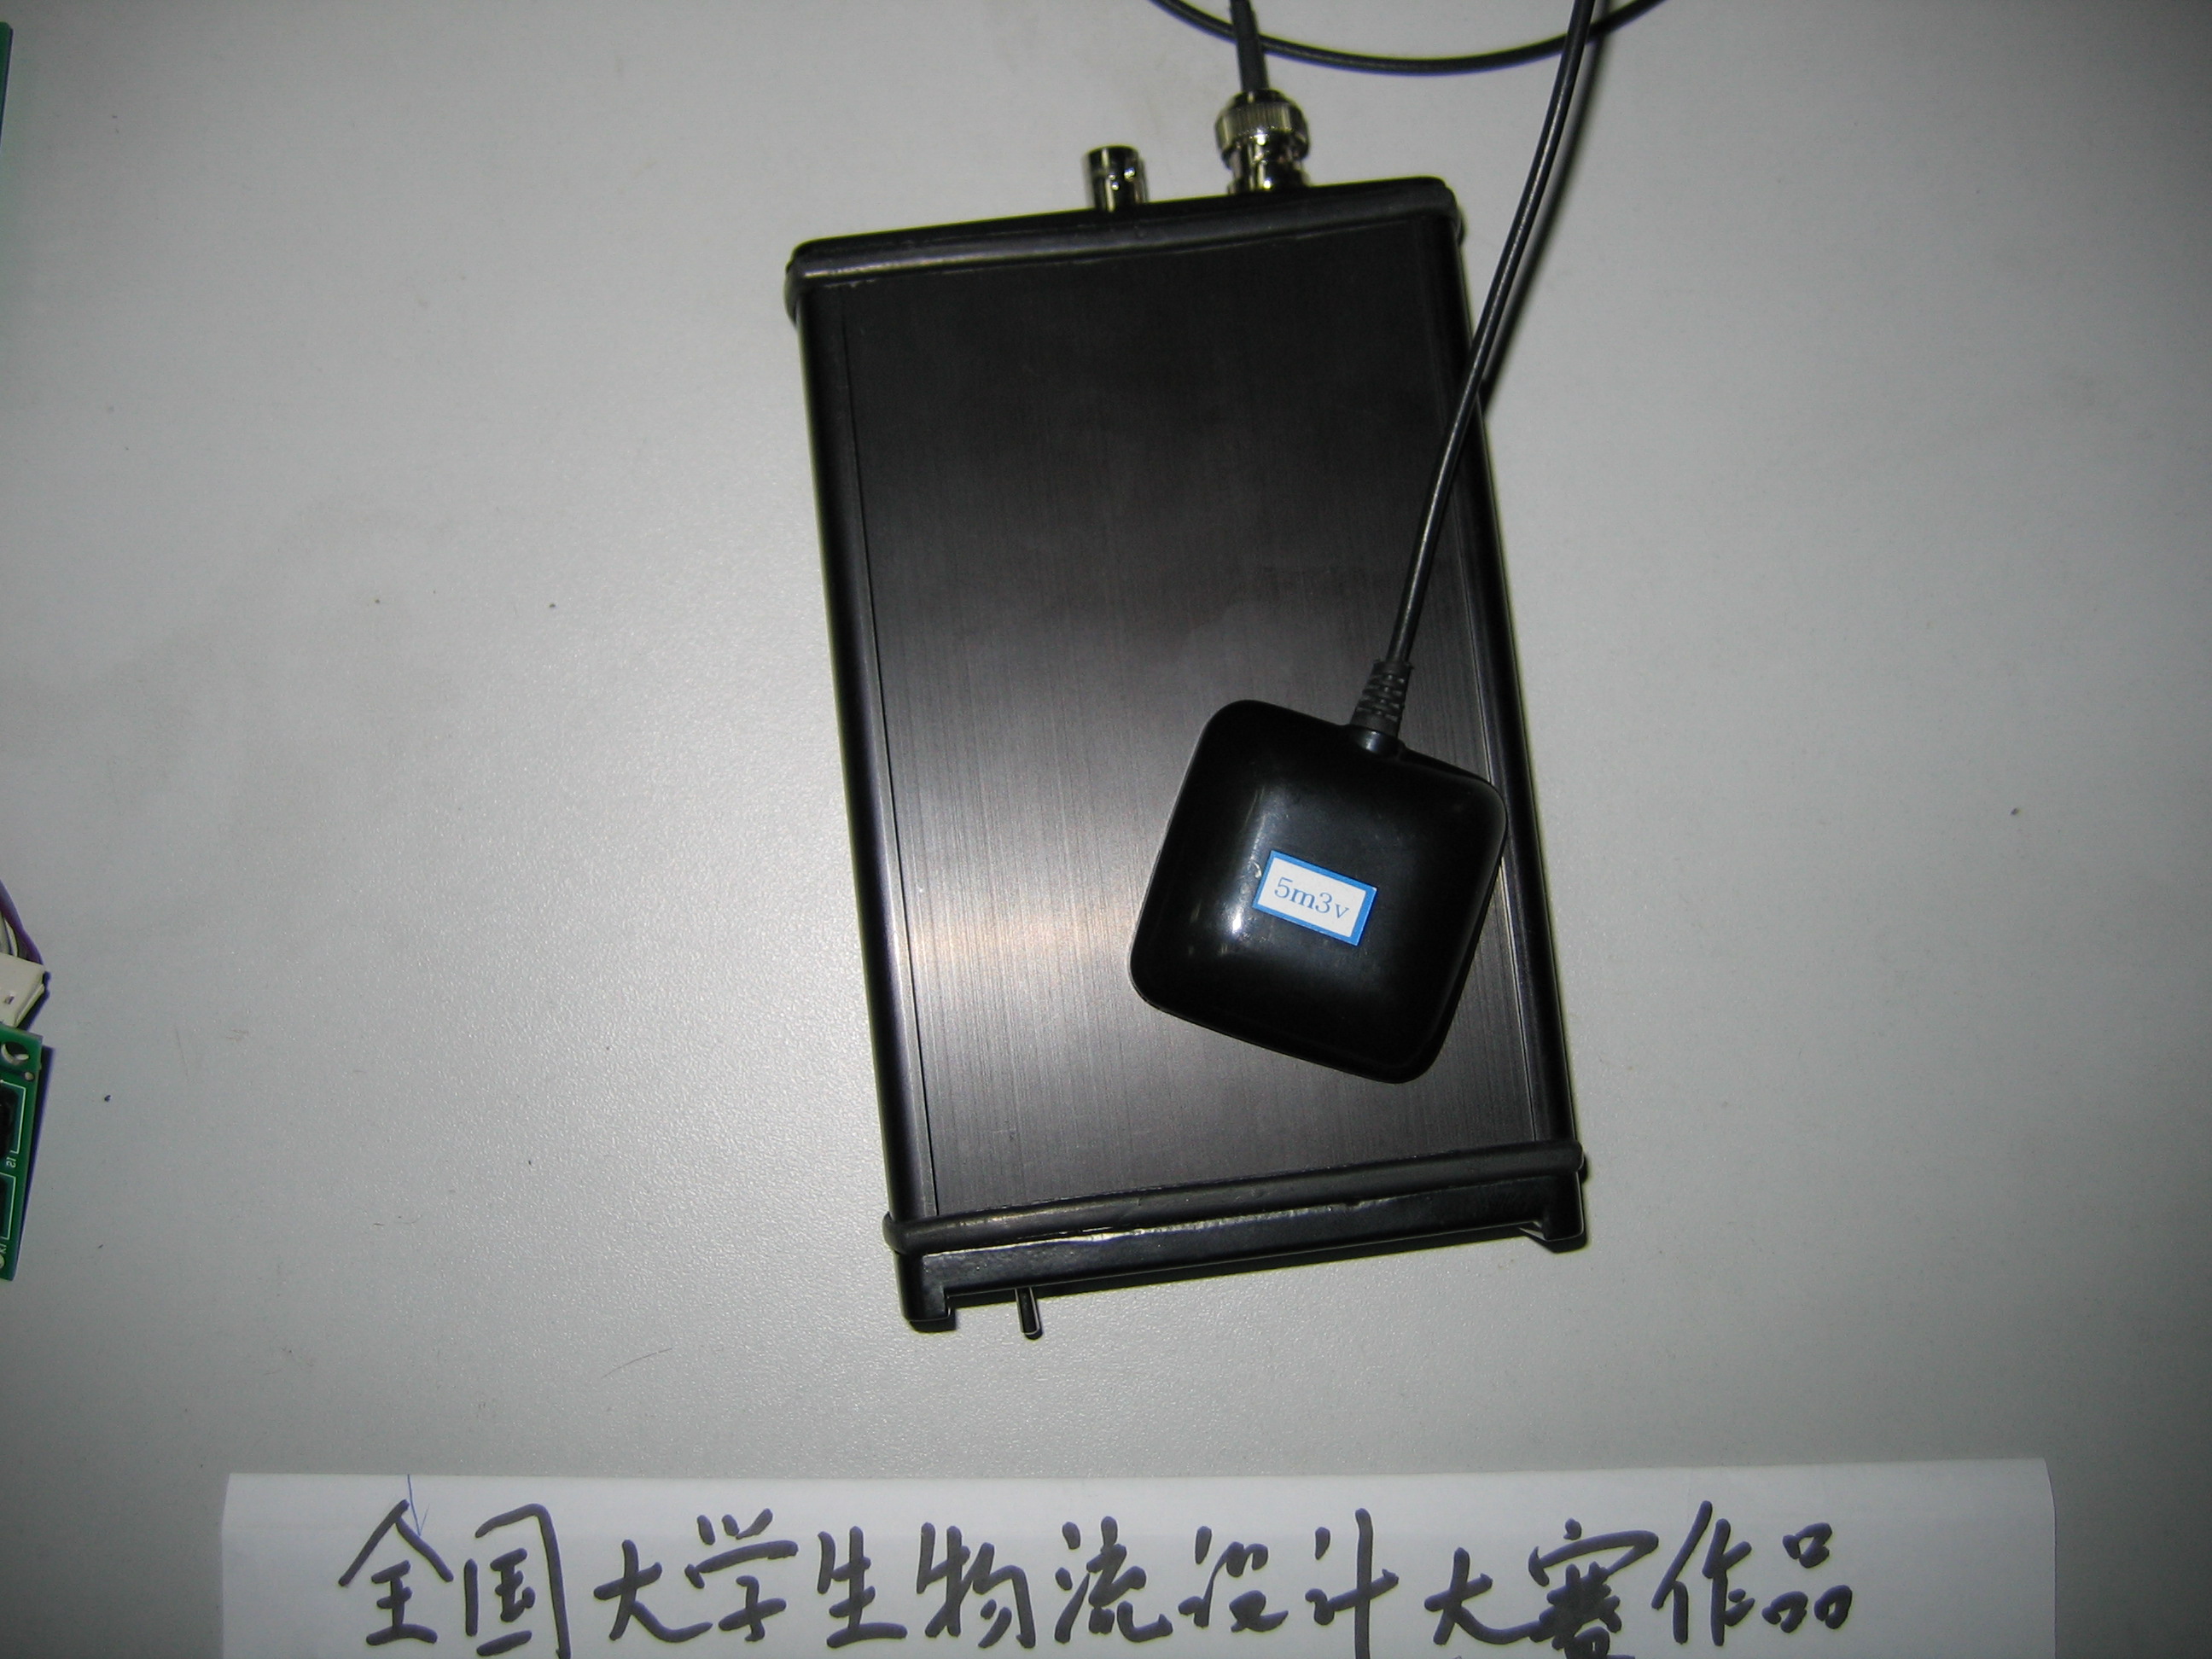 5m3v
全国大学生物流设计大赛作品